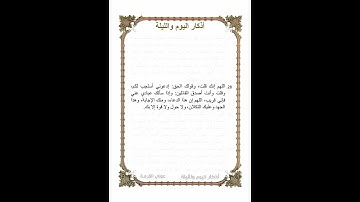 أذكار اليوم والليلة
28 اللهم إنك قلت، وقولك الحق: إدعوني أستجب لكم،
وقلت وأنت أصدق القائلين: وإذا سألك عبادي عني
فإني قريب، اللهم إن هذا الدعاء، ومنك الإجابة، وهذا
الجهد وعليك التكلان، ولا حول ولا قوة إلا بك.
أذكار اليوم والليلة